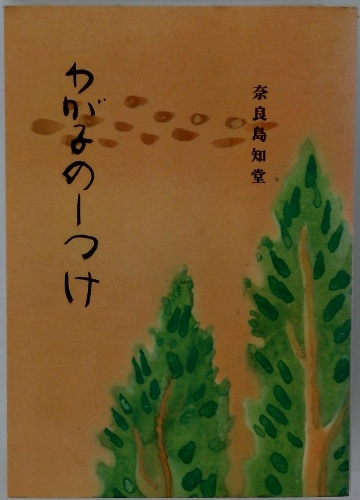 奈良島知堂
わが子のしつけ